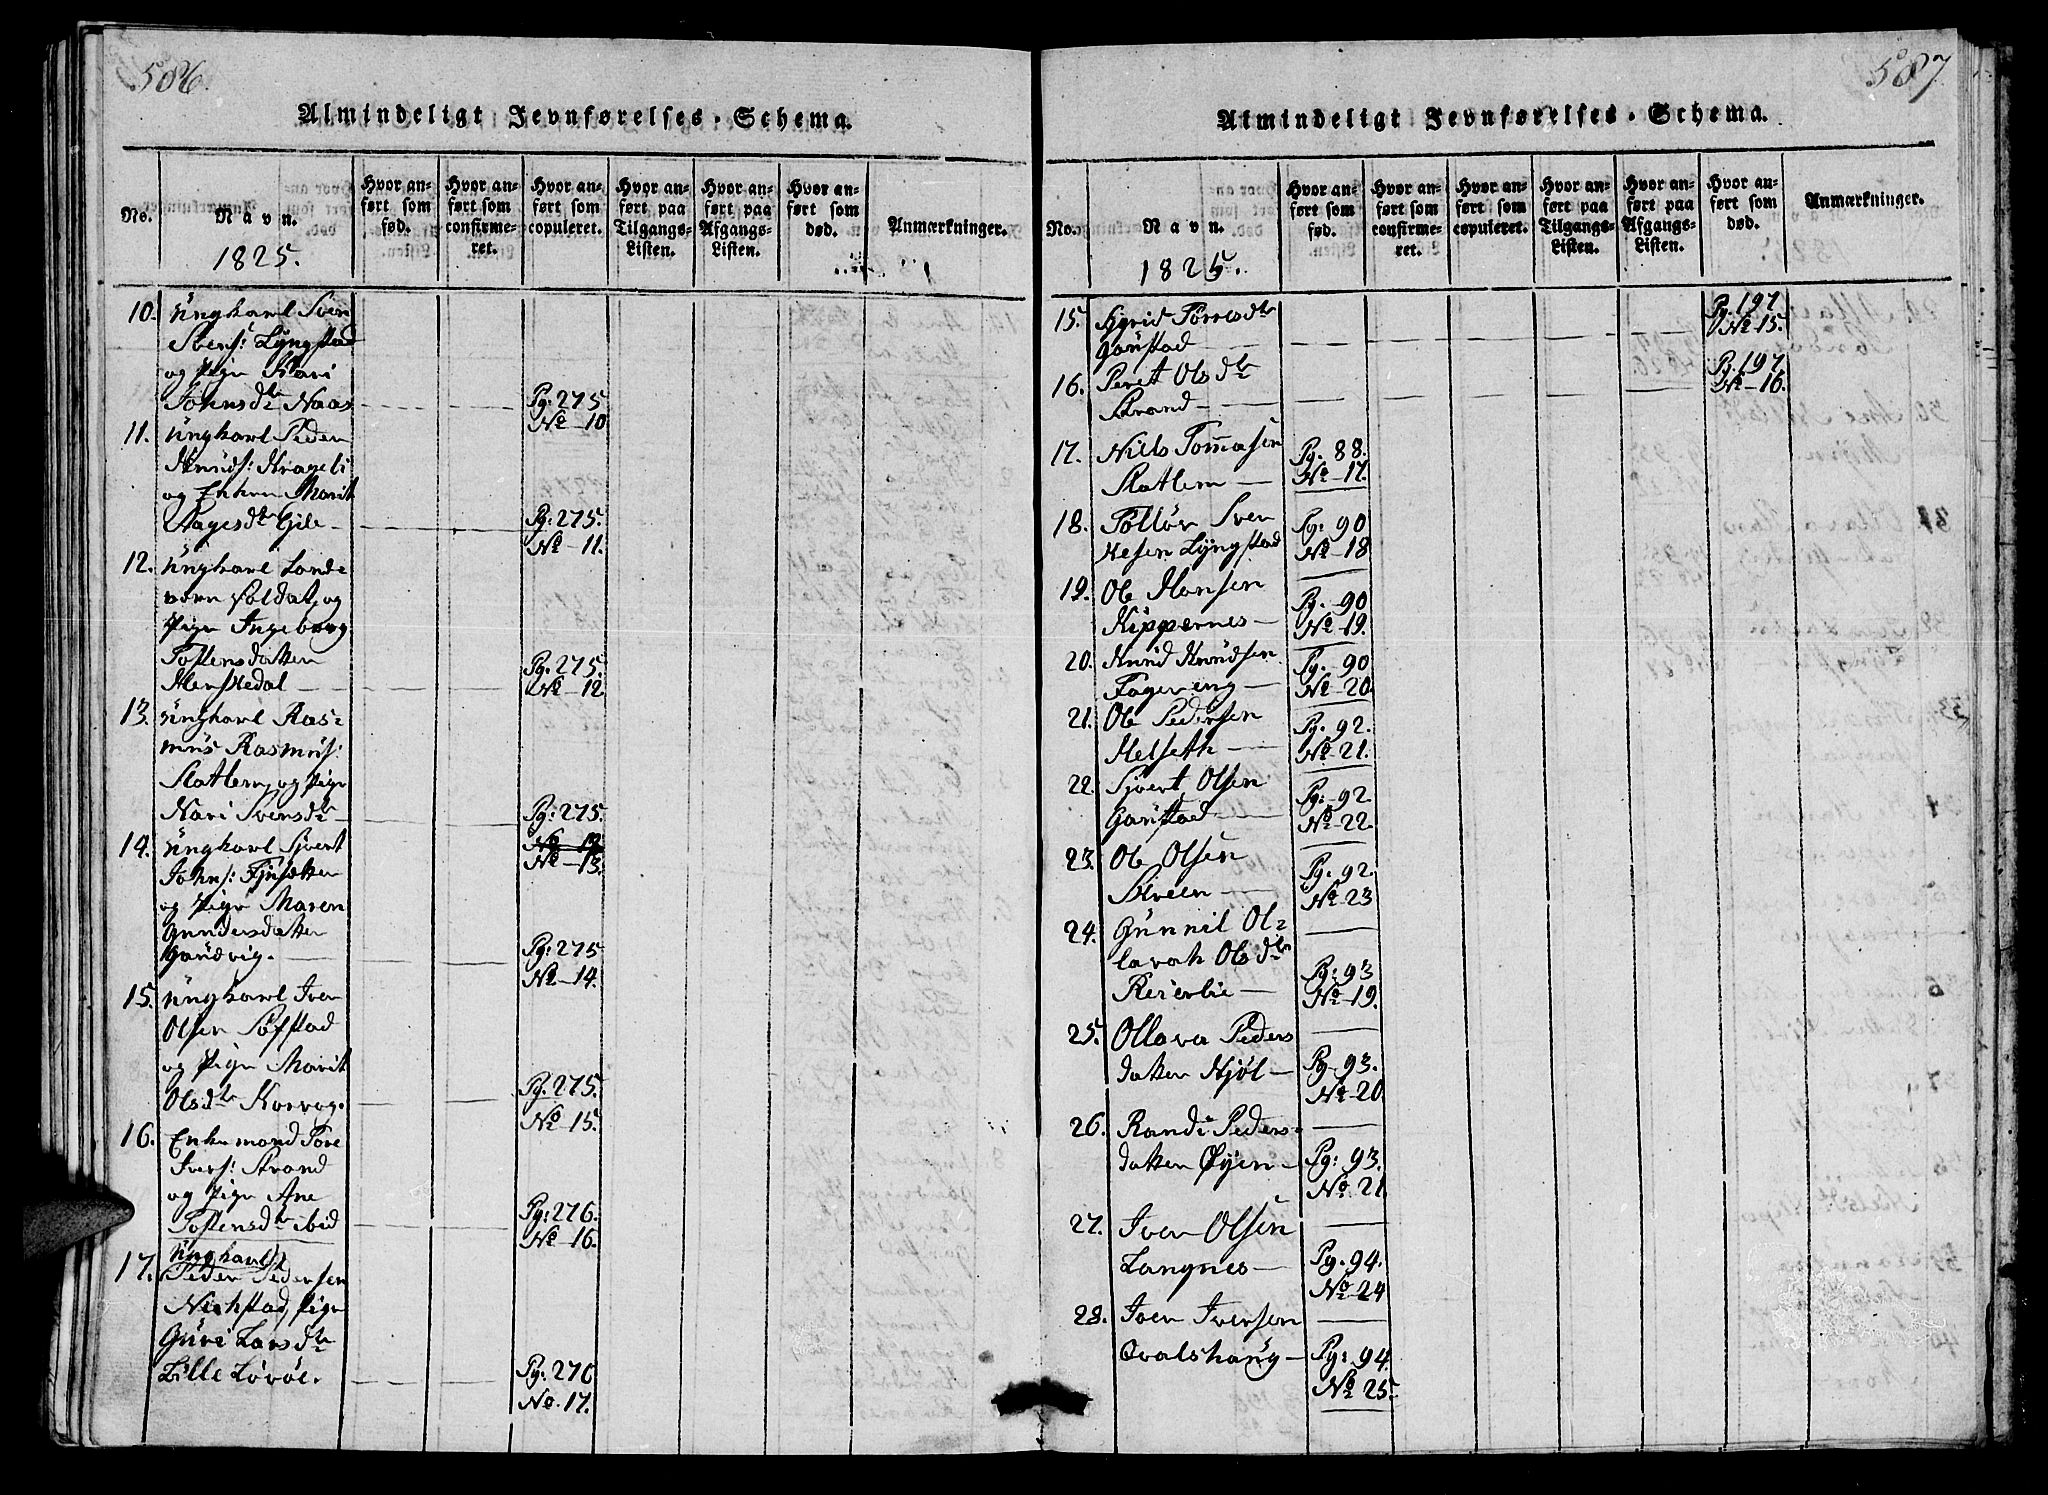 586.
Almindeligt Jevnførelses-Schema.
No.
Navn.
1825.
Hvor anført som fød.
Hvor anført som confirmeret.
Hvor anført som copuleret.
Hvor anført paa Tilgangs-Listen.
Hvor anført paa Afgangs-Listen.
Hvor anført som død.
Anmærkninger.
10. Ungkarl Sven
Svens: Lyngstad
og Pige Kari
Johnsdtr Naas Pg: 275
No 10
11. Ungkarl Peder
Knuds: Krageli
og Enken Marit
Aagesdtr Gile Pg: 275.
No 11.
12. Ungkarl Lande
vern Soldat, og
Pige Ingeborg
Tostensdatter
Henskedal Pg: 275.
No 12
13. Ungkarl Ras-
mus Rasmus:
Slatlem, og Pige
Kari Svensdtr Pg: 275.
No 13
No 13.
14. Ungkarl Sjvert
Johns: Fjusætter
og Pige Maren
Gundersdatter
Gaudvig. Pg: 275
No 14.
15. Ungkarl Iver
Olsen Søfstad
og Pige Marit
Olsdtr Korvog. Pg. 275.
No 15.
16. Enkemand Tore
Ivers: Strand
og Pige Ane
Tostensdtr ibid Pg: 276.
No 16.
Ungkarl
17. Peder Pedersen
Nerhstad, Pige
Guri Larsdtr
Lille Løvøl. Pg: 276
No. 17.
587
Almindeligt Jevnførelses-Schema.
No.
Navn.
1825.
Hvor anført som fød.
Hvor anført som confirmeret.
Hvor anført som copuleret.
Hvor anført paa Tilgangs-Listen.
Hvor anført paa Afgangs-Listen.
Hvor anført som død.
Anmærkninger.
15. Sigrid Torresdtr Pg. 197
Gaustad No 15.
16. Peret Olsdtr Pg. 197
Strand No 16.
17. Niels Tommasen Pg. 88.
Slatlem No 17.
18. Tolløv Sven Pg: 90
Nesen Lyngstad No 18
19. Ole Hansen Pg. 90
Kippernes No 19.
20. Knud Knudsen Pg. 90
Fagereng No 20.
21. Ole Pedersen Pg. 92.
Helseth No 21.
22. Sjvert Olsen Pg: 92.
Gaustad No 22.
23. Ole Olsen Pg. 92.
Streen No 23
24. Gunnil Ol-
lavah Olsdtr Pg: 93
Reierlie No 19.
25. Ollava Peders
datter Hjøl Pg. 93.
No 20
26. Randi Peders-
datter Øyen Pg: 93.
No 21
27. Iver Olsen
Langnes Pg. 94.
No 24
28. Iver Iversen
Qvalshaug Pg: 94
No 25.